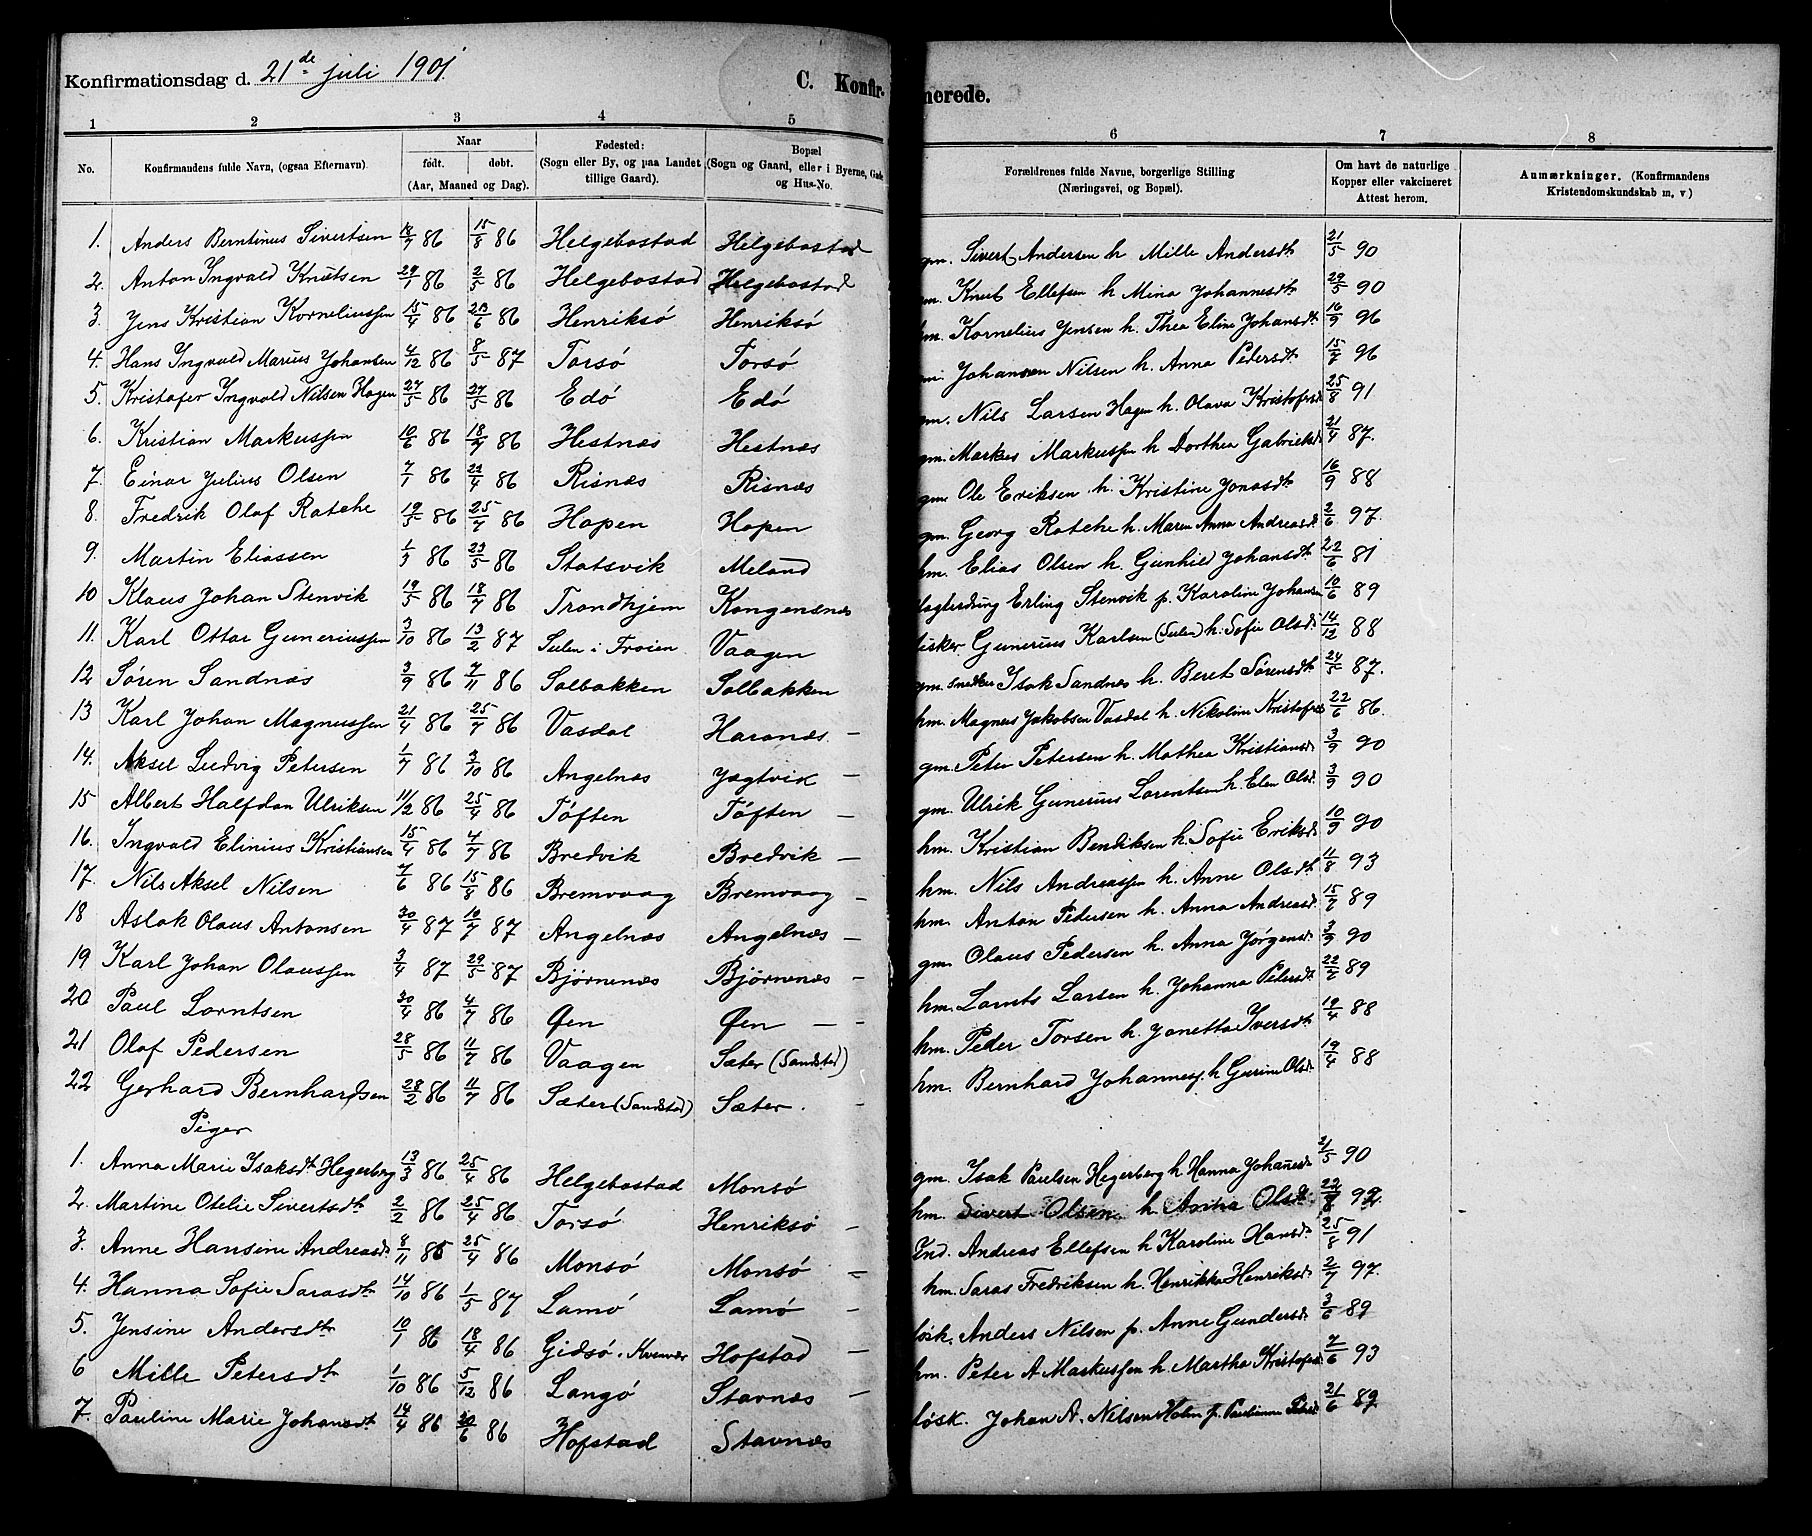 Konfirmationsdag d. 21de juli 1901.
C. Konfir-
merede.
1 2 3 4 5 6 7 8
No.
Konfirmandens fulde Navn, (ogsaa Efternavn).
Naar
født. døbt.
(Aar, Maaned og Dag).
Fødested:
(Sogn eller By, og paa Landet
tillige Gaard).
Bopæl
(Sogn og Gaard, eller i Byerne, Gade
og Hus-No.
Forældrenes fulde Navne, borgerlige Stilling
(Næringsvei, og Bopæl).
Om havt de naturlige
Kopper eller vakcineret
Attest herom.
Anmærkninger. (Konfirmandens
Kristendomskundskab m, v)
1. Anders Berntinus Sivertsen 18/7 86 15/8 86 Helgebostad Helgebostad gm. Sivert Andersen h Mille Andersdt 21/5 90
2. Anton Ingvald Knutsen 29/1 86 2/5 86 Helgebostad Helgebostad m. Knut Ellefsen h Mina Johannesdt 29/5 90
3. Jens Kristian Korneliussen 15/4 86 20/6 86 Henriksø Henriksø m. Kornelius Jensen h. Thea Eline Johansdt 10/9 96
4. Hans Ingvald Marius Johansen 4/12 86 8/5 87 Torsø Torsø Johansen Nilsen h. Anna Pedersdt 15/7 96
5. Kristofer Ingvald Nilsen Hagen 27/5 86 27/5 86 Edø Edø gm. Nils Larsen Hagen h. Olava Kristofersd 25/8 91
6. Kristian Markussen 10/6 86 18/7 86 Hestnæs Hestnæs gm. Markus Markussen h Dorthea Gabrielsd 21/4 87.
7. Einar Julius Olsen 7/1 86 22/4 86 Risnæs Risnæs gm. Ole Eriksen h. Kristine Jonasdt 16/9 88
8. Fredrik Olaf Ratche 19/3 86 25/4 86 Hopen Hopen gm. Georg Ratche h. Maren Anna Andreasd 2/6 97.
9. Martin Eliassen 1/3 86 23/5 86 Statsvik Meland hm. Elias Olsen h. Gunhild Johansdt 22/6 81
10 Klaus Johan Stenvik 19/5 86 18/7 86 Trondhjem Kongensnæs Erling Stenvik p. Karoline Johansen 10/6 89
11. Karl Ottar Guneriussen 3/10 86 13/2 87 Sulen i Froien Vaagen fisker Gunerius Karlsen (Sulen) h. Sofie Olsd. 14/12 88
12 Søren Sandnæs 3/9 86 7/11 86 Solbakken Solbakken gm. snedker Isak Sandnes h. Beret Sørensdt 24/5 87.
13 Karl Johan Magnussen 21/4 86 25/7 86 Vasdal Haranæs - hm. Magnus Jakobsen Vasdal h. Nikoline Kristofersd 22/6 86.
14. Aksel Ludvig Petersen 1/7 86 3/10 86 Angelnæs Jægtvik - gm. Peter Petersen h. Mathea Kristiansd. 3/9 90
15 Albert Halfdan Ulriksen 11/2 86 25/4 86 Tøften Tøften - gm. Ulrik Gunerius Lorentsen h. Elen Olsd. 3/9 90
16. Ingvald Elinius Kristiansen 15/4 86 4/7 86 Bredvik Bredvik - hm. Kristian Bendiksen h. Sofie Eriksd. 10/9 90
17. Nils Aksel Nilsen 7/6 86 15/8 86 Bremvaag Bremvaag - hm. Nils Andreassen h. Anne Olsdt 11/8 93
18 Aslak Olaus Antonsen 30/4 87 10/7 87 Angelnæs Angelnæs - hm. Anton Pedersen h. Anna Andreasd. 15/7 89
19 Karl Johan Olaussen 3/4 87 29/5 87 Bjørnenæs Bjørnenæs - gm. Olaus Pedersen h. Anna Jørgensd. 3/9 90
20 Paul Lorntsen 30/4 86 4/7 86 Øen Øen - - hm. Lornts Larsen h. Johanna Petersdt 89
21 Olaf Pedersen 28/5 86 11/7 86 Vaagen Sæter (Sandstad) hm. Peder Torsen h. Janetta Iversdt 19/4 88
22 Gerhard Bernhardsen 28/2 86 11/7 86 Sæter (Sandstad) Sæter. - hm. Bernhard Johannes. h Gurine Olsd. 19/4 88
Piger
1. Anna Marie Isaksdt Hegerberg 13/3 86 25/4 86 Helgebostad Monsø gm. Isak Paulsen Hegerberg h Hanna Johannesd. 21/5 90
2. Martine Otelie Sivertsdt 2/2 86 25/4 86 Torsø Henriksø - hm. Sivert Olsen h. Anna Olsdt. 22/8 92.
3. Anne Hansine Andreasd. 8/11 85 25/4 86 Monsø Monsø - Ind. Andreas Ellefsen h Karoline Hansd. 25/8 91
4. Hanna Sofie Sarasdt 14/10 86 1/5 87 Lamø Lamø - hm. Saras Fredriksen h. Henrikka Henriksd. 2/7 97.
5. Jensine Andersdt 10/1 86 18/4 86 Gidsø. Kvenvær Hofstad - løsk. Anders Nilsen p. Anne Gundersd. 3/6 89
6 Mille Petersdt 1/10 86 5/12 86 Langø Stavnæs - hm. Peter A Markussen h. Martha Kristofersd 7/6 93
7. Pauline Marie Johansdt 14/4 86 20/6 86 Hofstad Stavnæs løsk. Johan A. Nilsen Holm p. Pauline 21/6 89